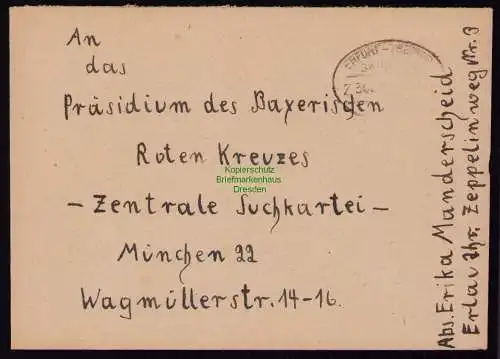 An
das
Präsidium des Bayerischen
Roten Kreuzes
- Zentrale Suchkartei -
München 22
Wagmüllerstr. 14-16.
Abs. Erika Manderscheid
Erlau Thr. Zeppelinweg Nr. 3
ERFURT-
Kopierschutz
Briefmarkenhaus
Dresden